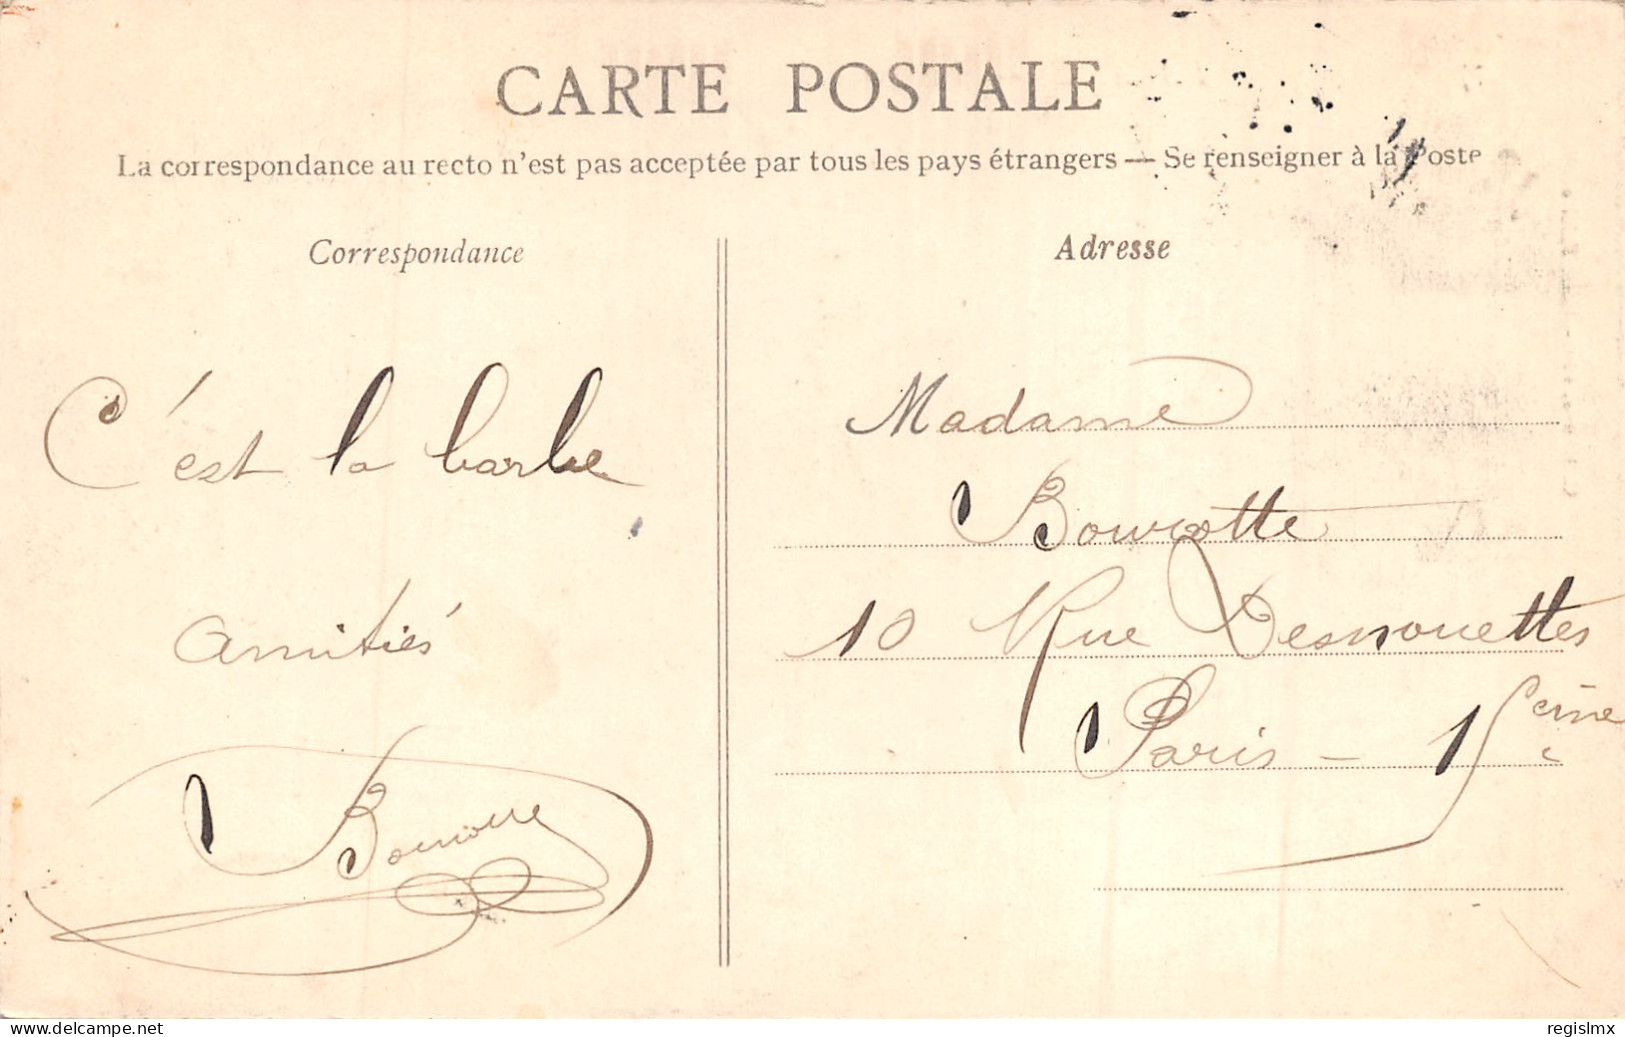 CARTE POSTALE
La correspondance au recto n'est pas acceptée par tous les pays étrangers — Se renseigner à la Poste
Correspondance
C'est la barbe
amitiés
Adresse
Madame
10 Rue Desnouettes
Paris - 15
Seine
www.delcampe.net
regislmx